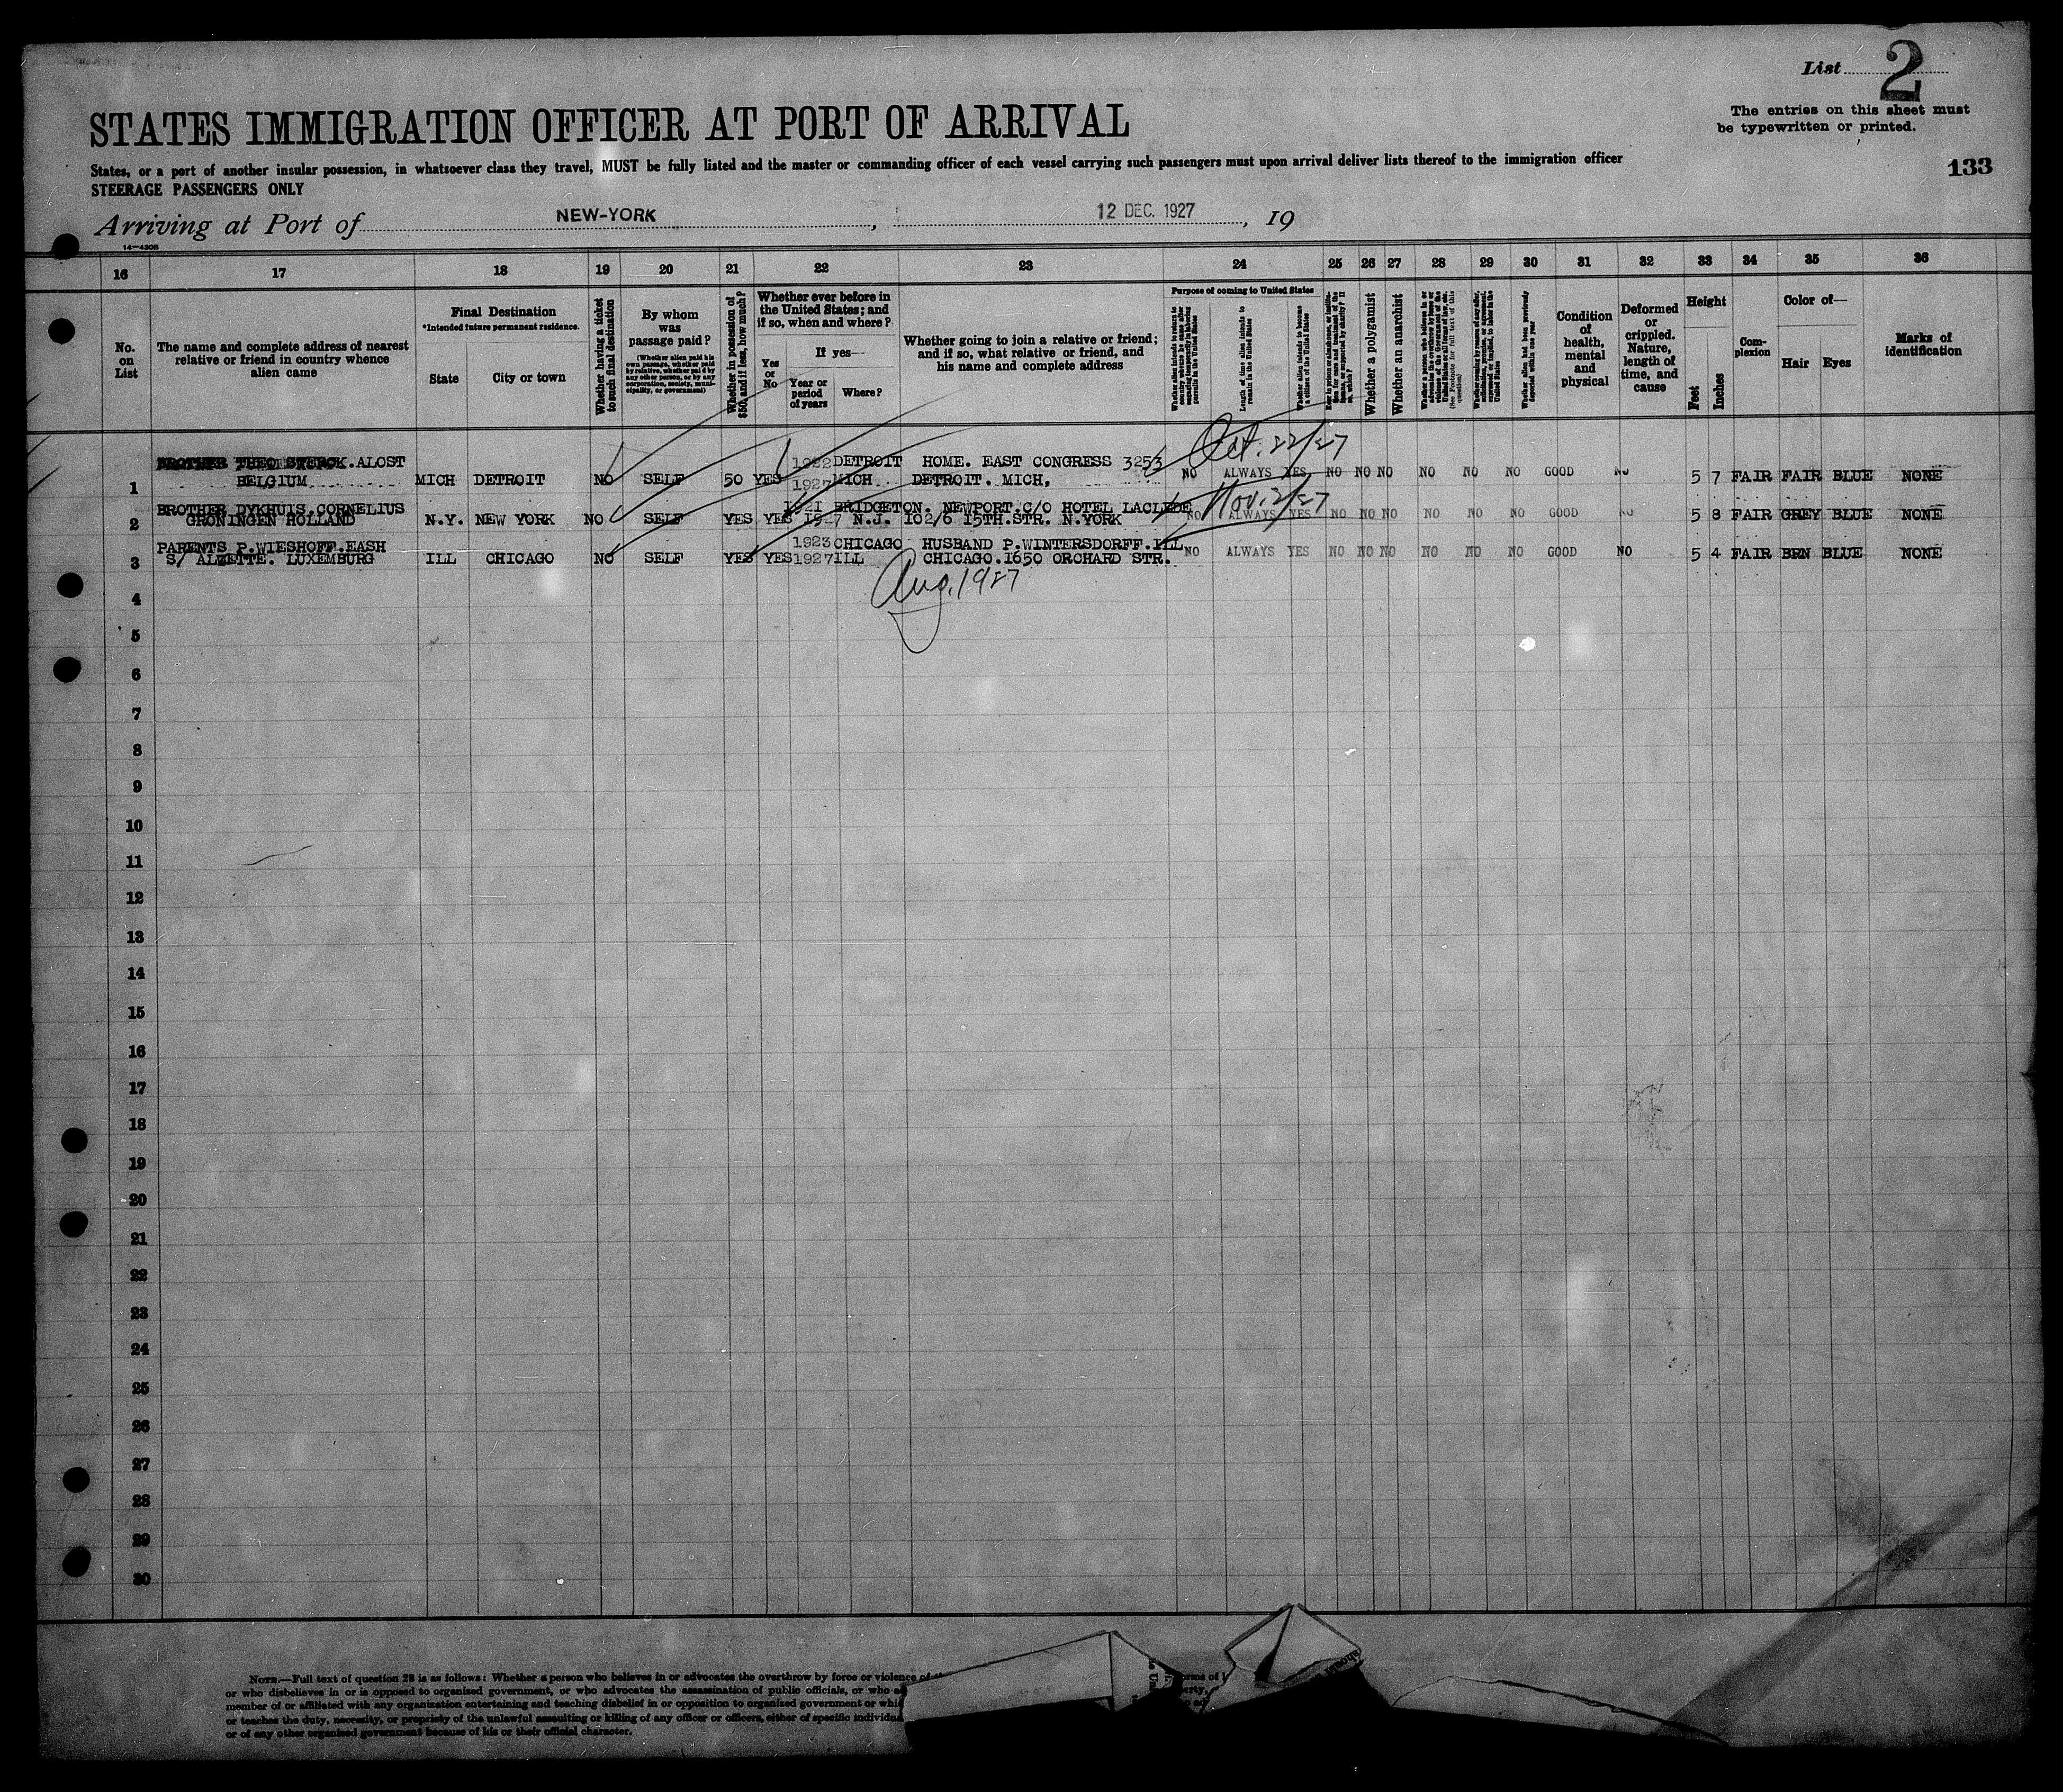 List 2
The entries on this sheet must
be typewritten or printed.
STATES IMMIGRATION OFFICER AT PORT OF ARRIVAL
133
States, or a port of another insular possession, in whatsoever class they travel, MUST be fully listed and the master or commanding officer of each vessel carrying such passengers must upon arrival deliver lists thereof to the immigration officer
STEERAGE PASSENGERS ONLY
Arriving at Port of NEW-YORK, 12 DEC. 1927, 19
14-430B
16 17 18 19 20 21 22 23 24 25 26 27 28 29 30 31 32 33 34 35 36
No.
on
List
The name and complete address of nearest
relative or friend in country whence
alien came
Final Destination
*Intended future permanent residence.
State City or town
Whether having a ticket
to such final destination
By whom
was
passage paid?
(Whether alien paid his
own passage, whether paid
by relative, whether paid by
any other person, or by any
corporation, society, muni-
cipality, or government)
Whether in possession of
$50, and if less, how much?
Whether ever before in
the United States; and
if so, when and where?
Yes
or
No
If yes—
Year or
period
of years
Where?
Whether going to join a relative or friend;
and if so, what relative or friend, and
his name and complete address
Purpose of coming to United States
Length of time alien intends to
remain in the United States
Whether alien intends to become
a citizen of the United States
Whether a polygamist
Whether an anarchist
(See Footnote for full text of this
question)
Whether alien had been previously
deported within one year
Condition
of
health,
mental
and
physical
Deformed
or
crippled.
Nature,
length of
time, and
cause
Height
Feet
Inches
Com-
plexion
Color of—
Hair Eyes
Marks of
identification
Oct. 22/27
BROTHER THEO STERCK.ALOST 1922 DETROIT HOME. EAST CONGRESS 3253
1 BELGIUM MICH DETROIT NO SELF 50 YES 1927 MICH DETROIT. MICH, NO ALWAYS YES NO NO NO NO NO NO GOOD NO 5 7 FAIR FAIR BLUE NONE
Nov. 2/27
BROTHER DYKHUIS.CORNELIUS 1921 BRIDGETON. NEWPORT.C/O HOTEL LACLEDE
2 GRONINGEN HOLLAND N.Y. NEW YORK NO SELF YES YES 1927 N.J. 102/6 15TH.STR. N.YORK NO ALWAYS YES NO NO NO NO NO NO GOOD NO 5 8 FAIR GREY BLUE NONE
PARENTS P.WIESHOFF.EASH 1923 CHICAGO HUSBAND P.WINTERSDORFF.ILL
3 S/ ALZETTE. LUXEMBURG ILL CHICAGO NO SELF YES YES 1927 ILL CHICAGO.1650 ORCHARD STR. NO ALWAYS YES NO NO NO NO NO NO GOOD NO 5 4 FAIR BRN BLUE NONE
Aug. 1927
4
5
6
7
8
9
10
11
12
13
14
15
16
17
18
19
20
21
22
23
24
25
26
27
28
29
30
NOTE.—Full text of question 28 is as follows: Whether a person who believes in or advocates the overthrow by force or violence of
or who disbelieves in or is opposed to organized government, or who advocates the assassination of public officials, or who
member of or affiliated with any organization entertaining and teaching disbelief in or opposition to organized government or
or teaches the duty, necessity, or propriety of the unlawful assaulting or killing of any officer or officers, either of specific
or of any other organized government because of his or their official character.